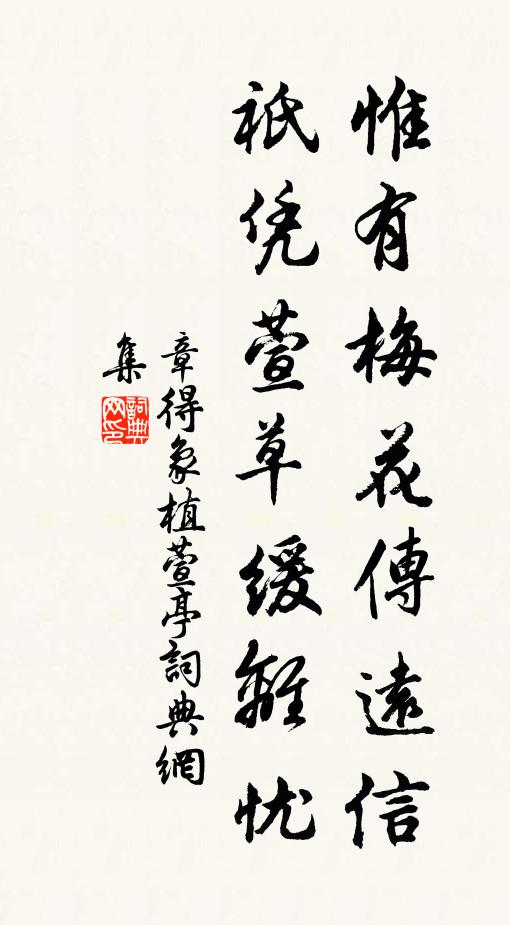 惟有梅花傳遠信
祇凭萱草緩離忧
章得象植萱亭詞典網
集
詞典
网印